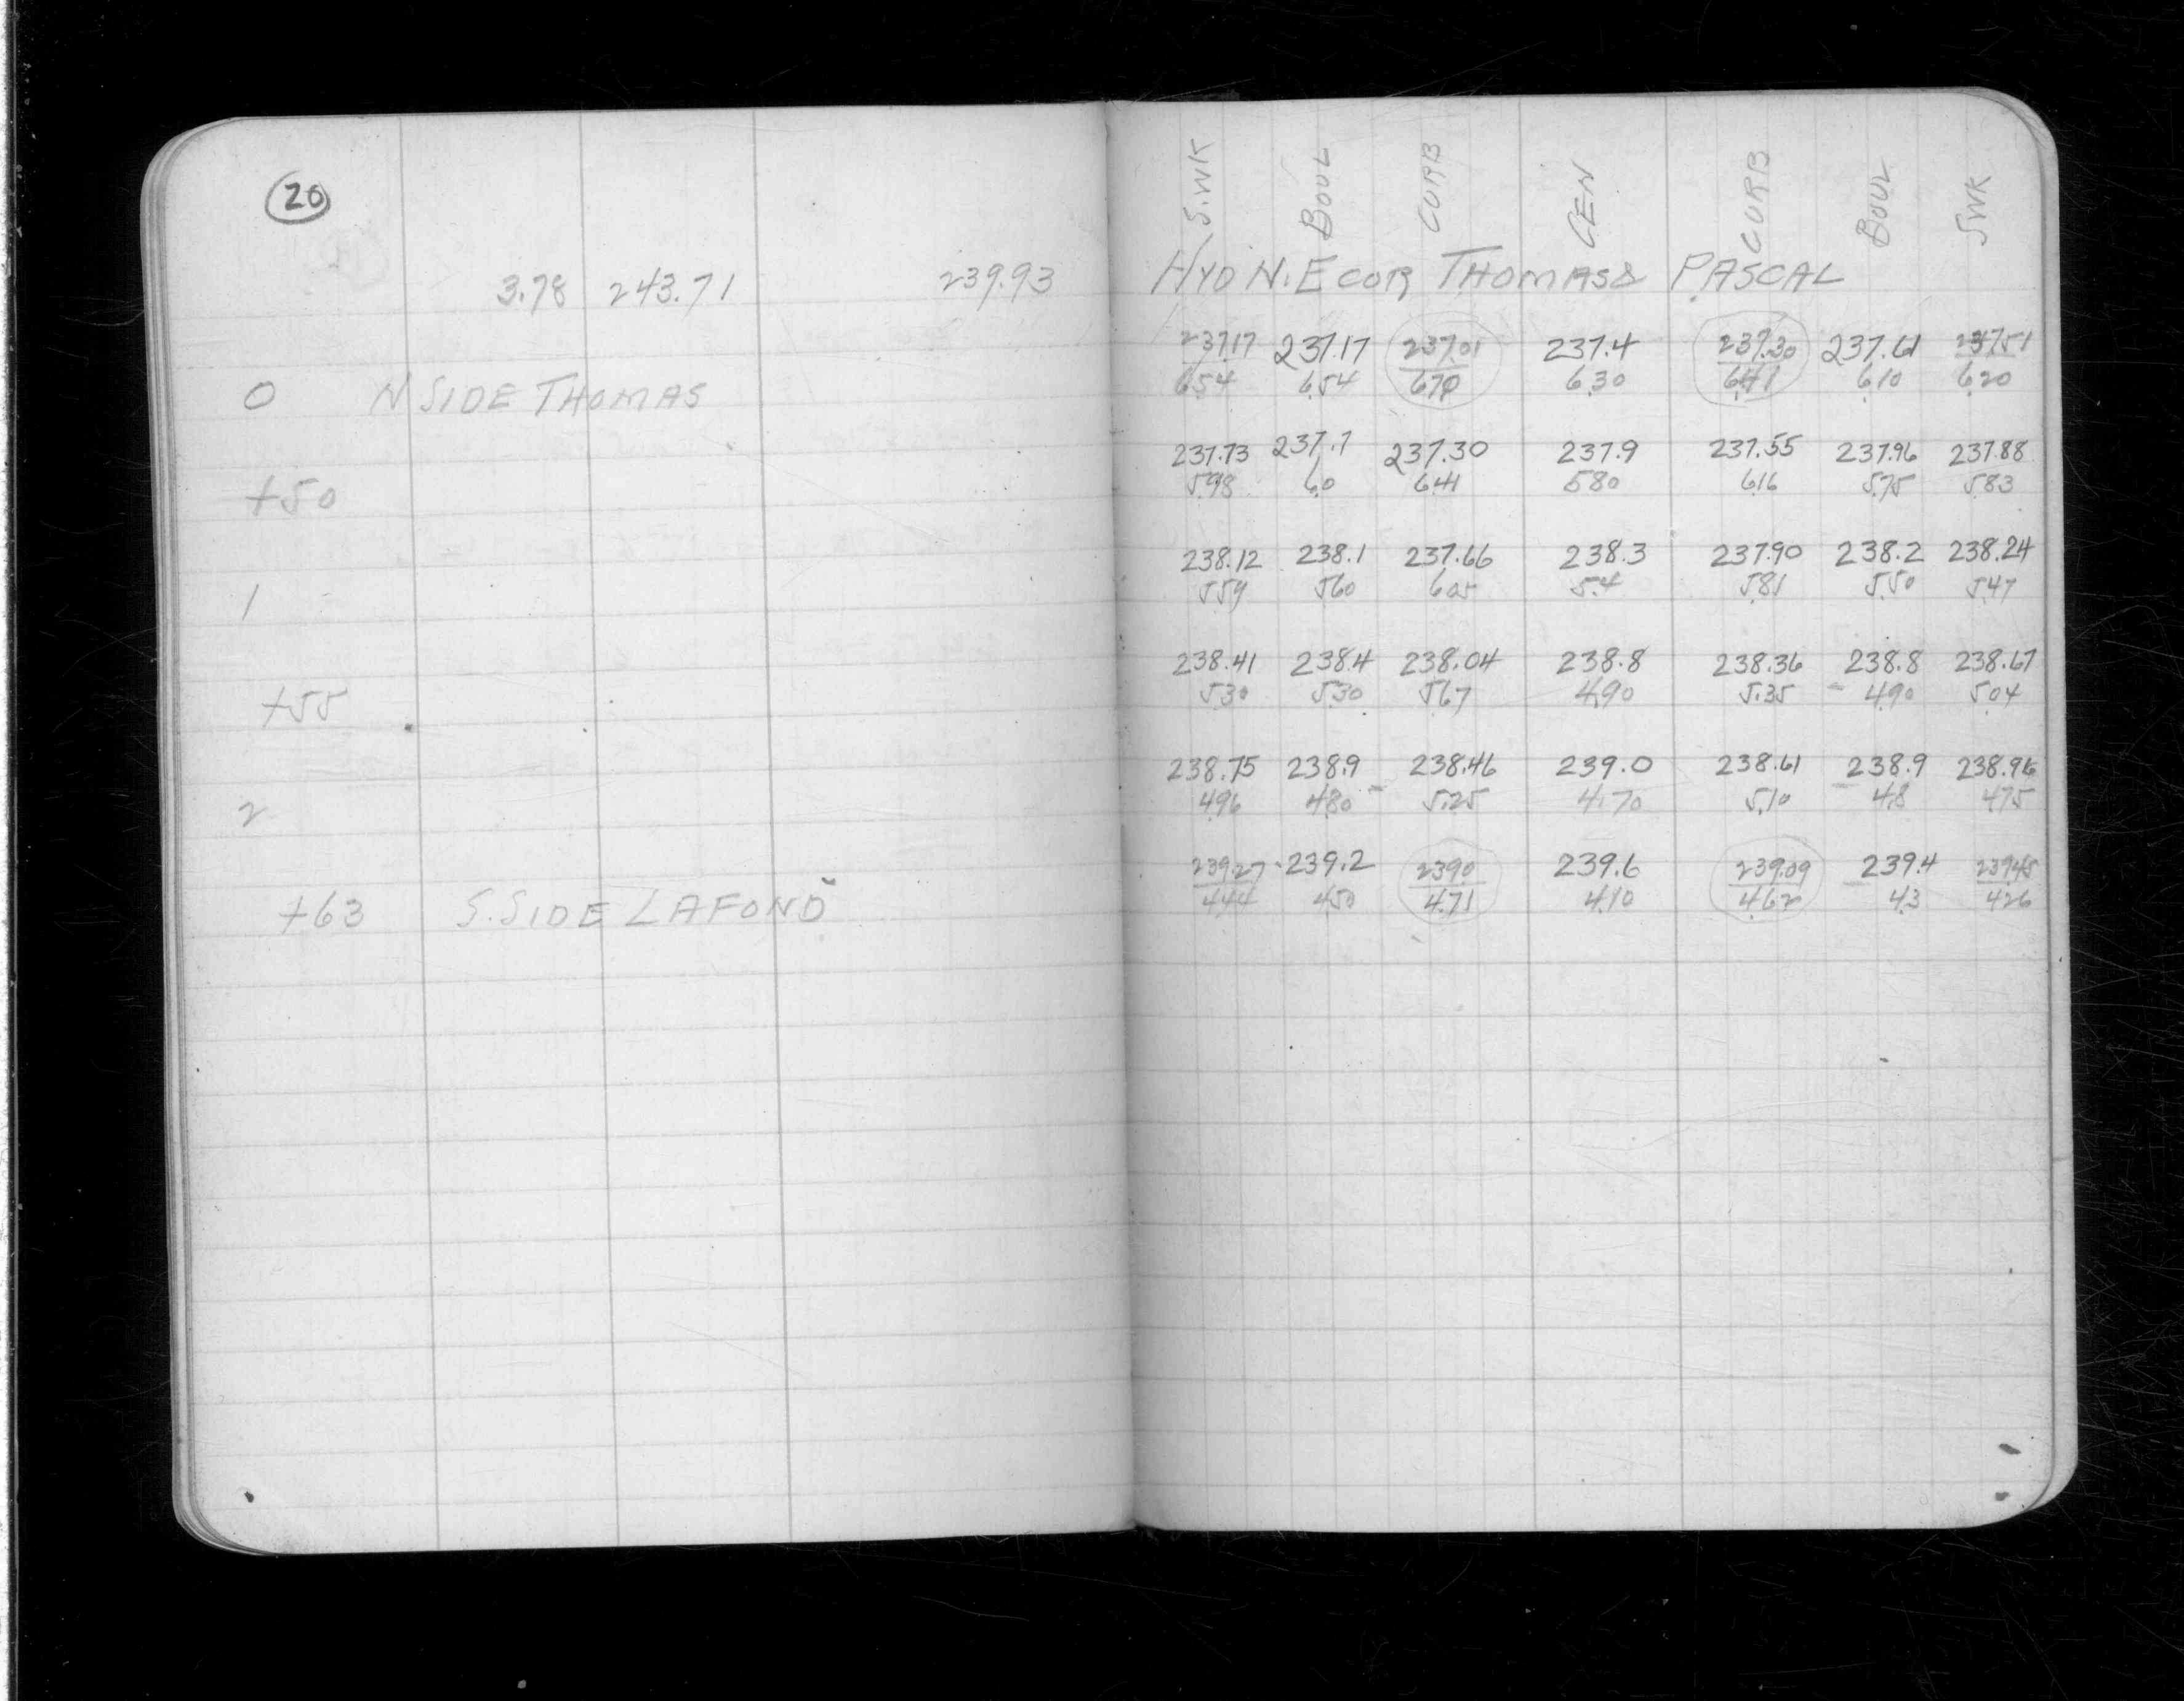 20
S.WK BOUL CURB CEN CURB BOUL SWK
3.78 243.71 239.93 HYD N.E COR THOMAS & PASCAL
237.17 237.17 237.01 237.4 237.30 237.61 237.51
0 N SIDE THOMAS 6.54 6.54 6.70 6.30 6.41 6.10 6.20
237.73 237.7 237.30 237.9 237.55 237.96 237.88
+50 5.98 6.0 6.41 5.80 6.16 5.75 5.83
238.12 238.1 237.66 238.3 237.90 238.2 238.24
1 5.59 5.60 6.05 5.4 5.81 5.50 5.47
238.41 238.4 238.04 238.8 238.36 238.8 238.67
+55 5.30 5.30 5.67 4.90 5.35 4.90 5.04
238.75 238.9 238.46 239.0 238.61 238.9 238.96
2 4.96 4.80 5.25 4.70 5.10 4.8 4.75
239.27 239.2 239.0 239.6 239.09 239.4 239.45
+63 S. SIDE LAFOND 4.44 4.50 4.71 4.10 4.62 4.3 4.26